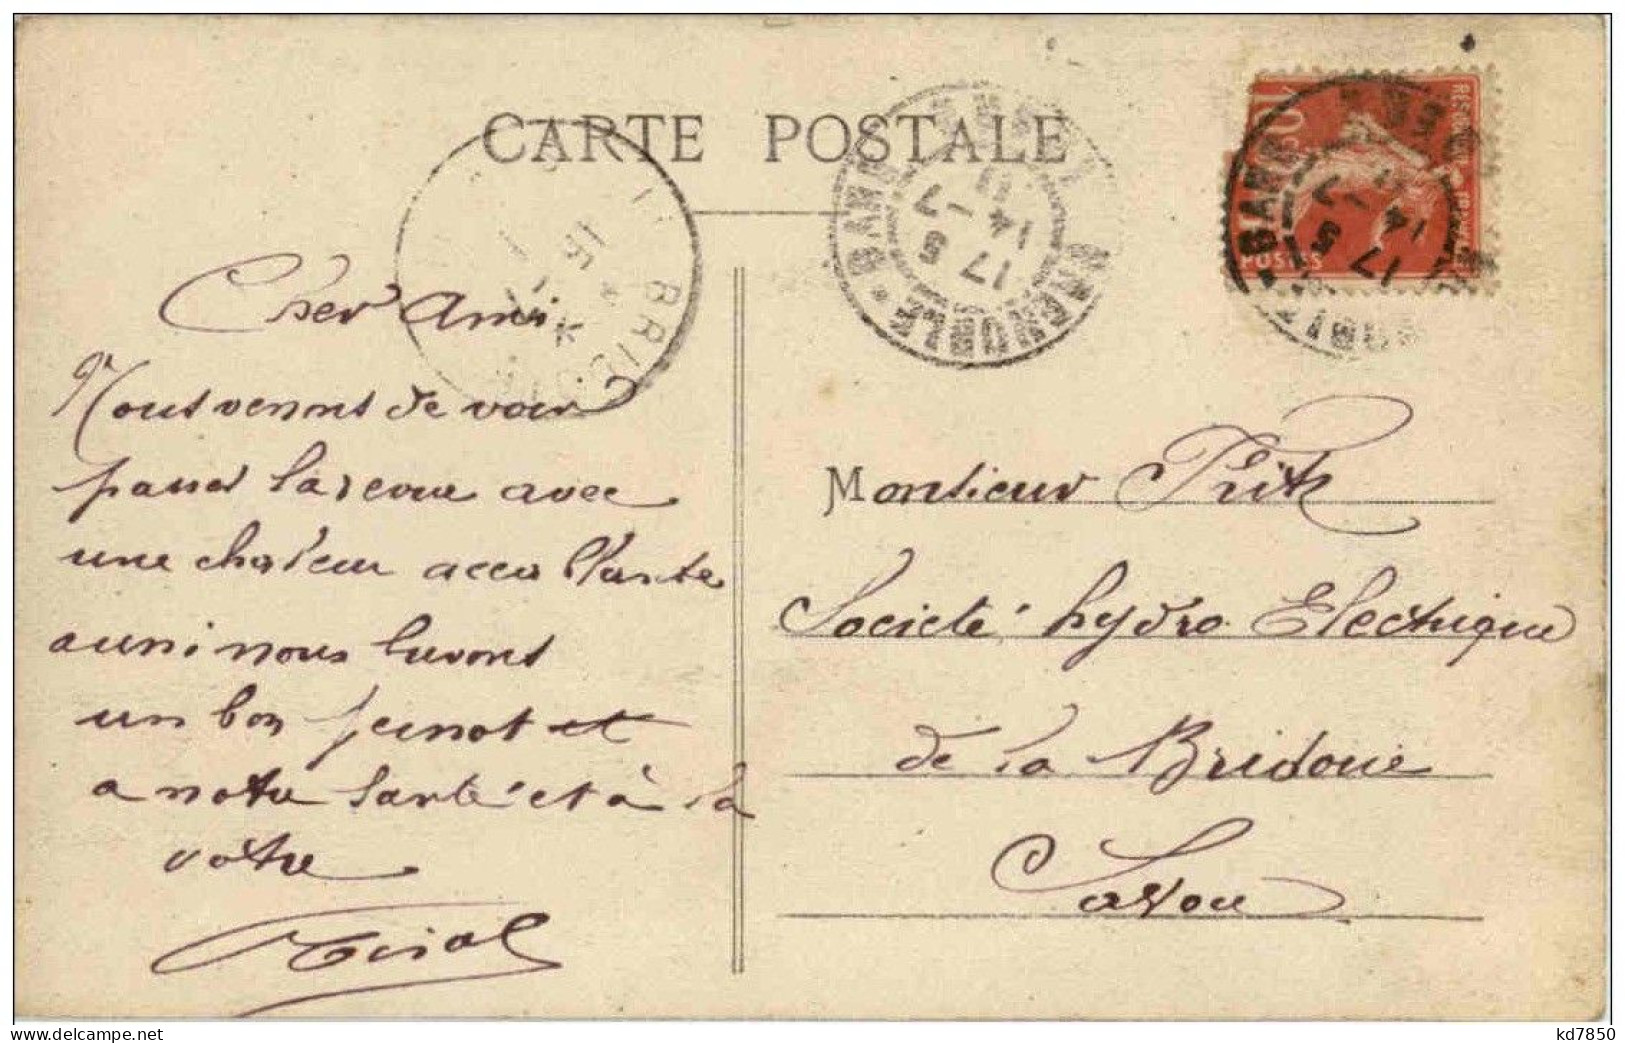 CARTE POSTALE
Cher Ami
Nous venons de voir
passer la revue avec
une chaleur accablante
aussi nous buvons
un bon pernot et
a notre santé et à la
votre
Monsieur Fritz
Société hydro Electrique
de la Bridoire
Savoie
17 35
14 - 7
15
BRIDOIRE
POSTES
10
delcampe.net
kd7850